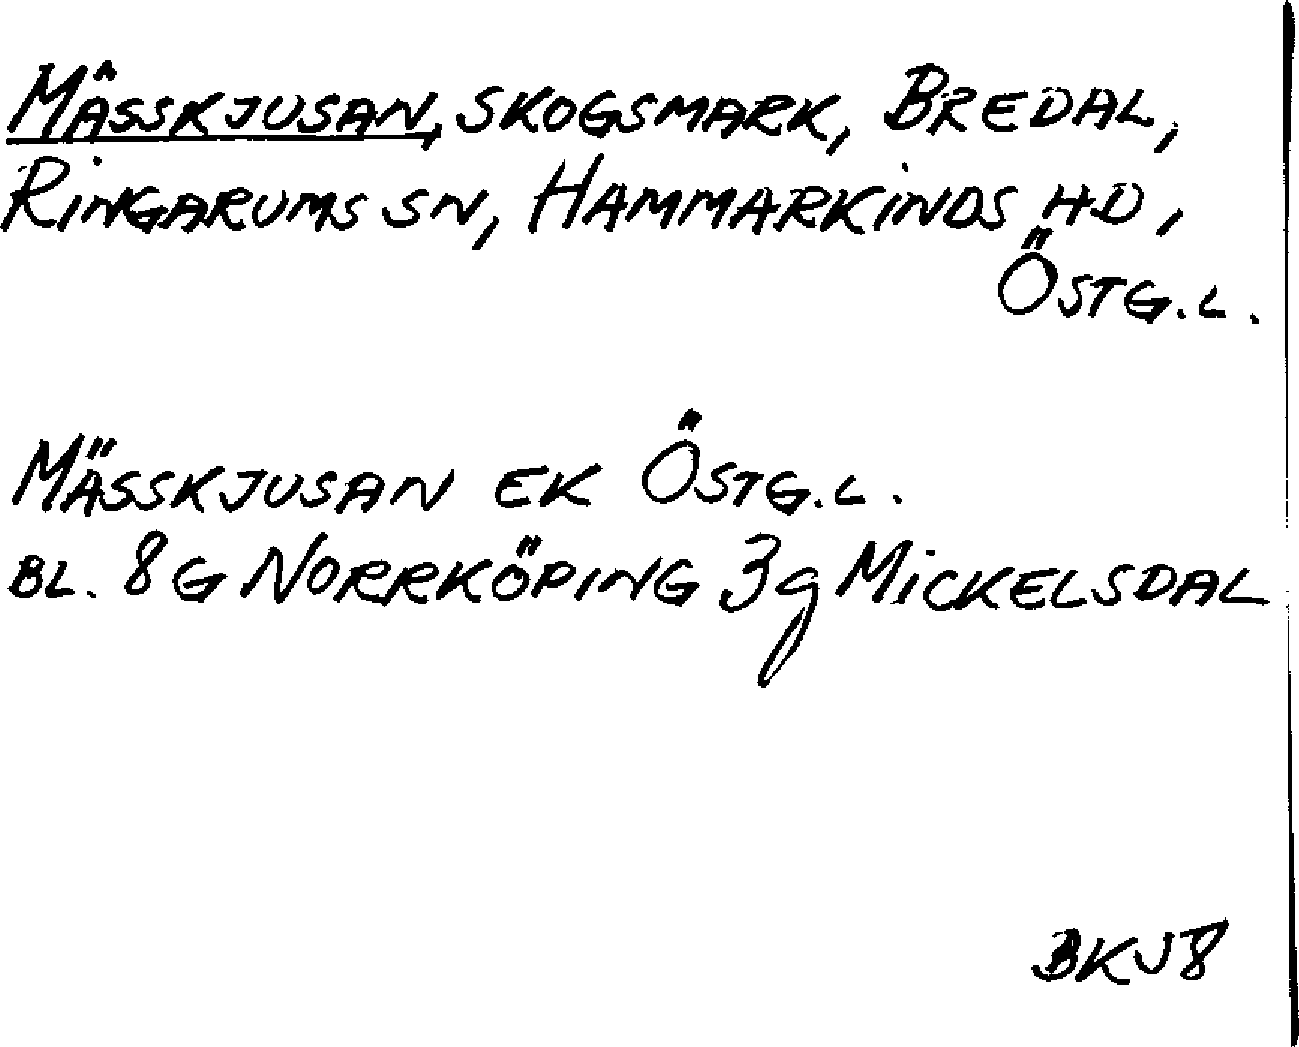 MÄSSKJUSAN, SKOGSMARK, BREDAL,
RINGARUMS SN, HAMMARKINDS HD,
ÖSTG.L.
MÄSSKJUSAN EK ÖSTG.L.
BL. 8G NORRKÖPING 3g MICKELSDAL
BKJ8